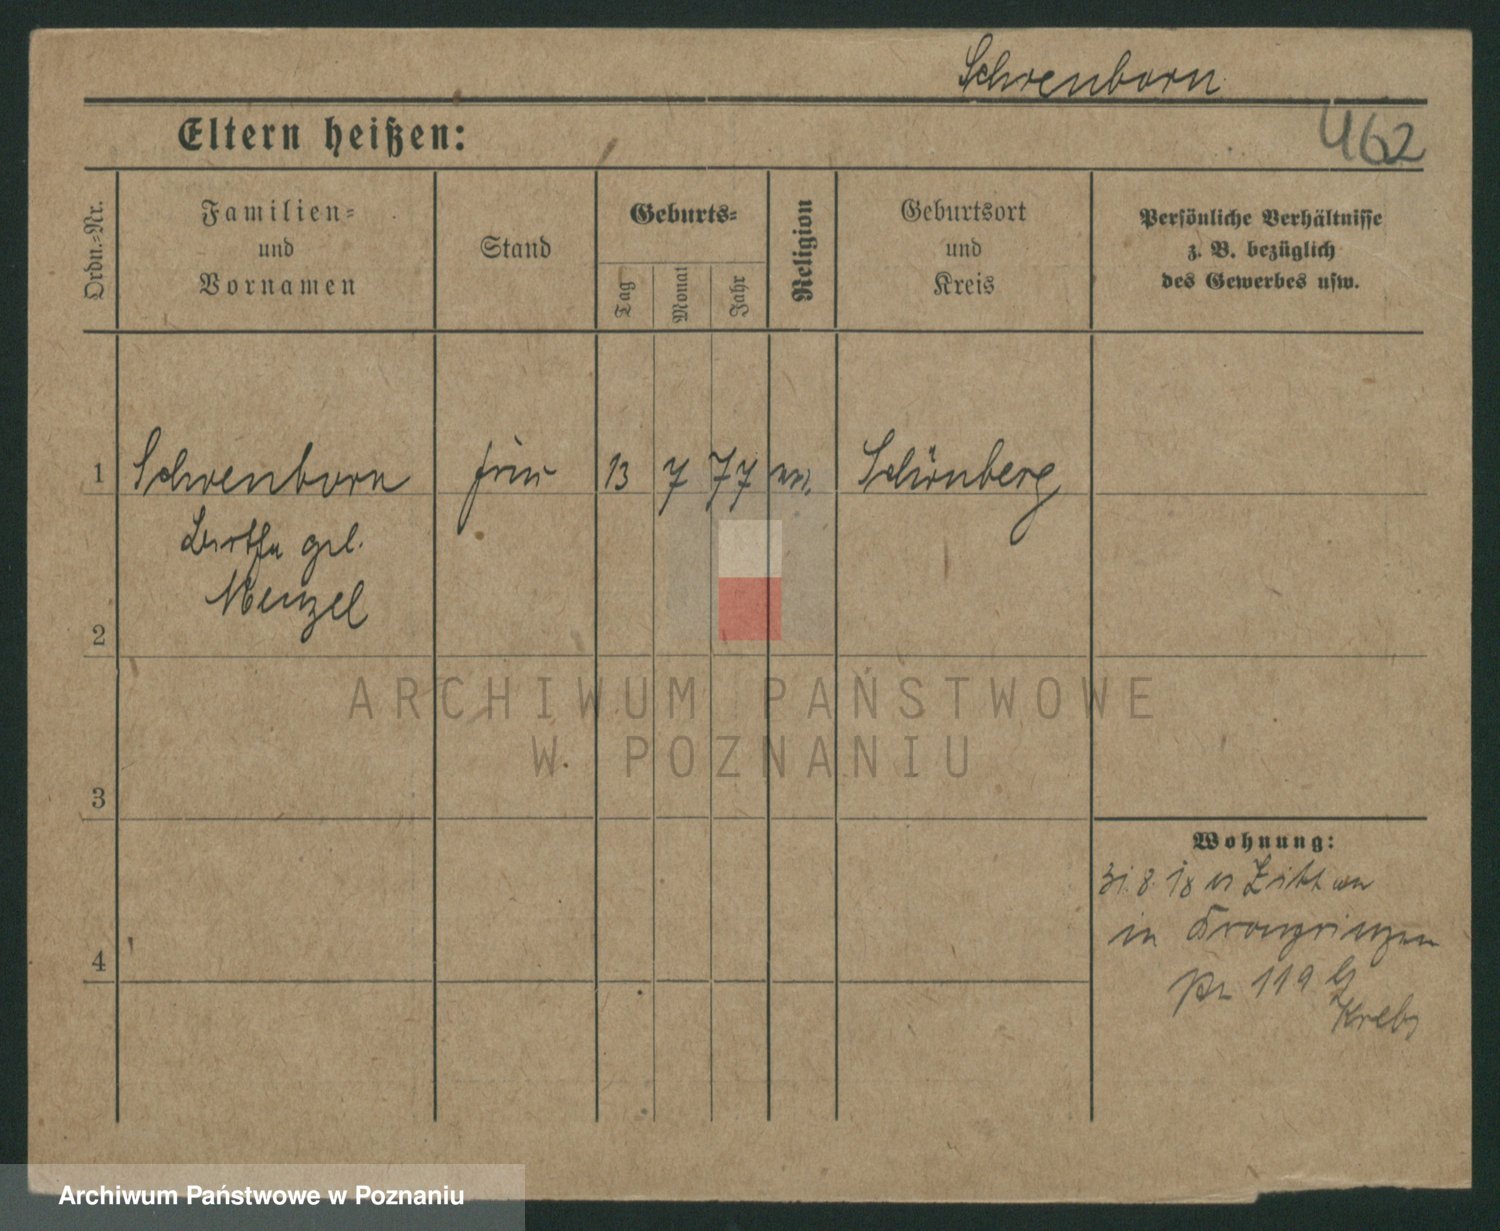 Schrenborn
Eltern heißen:
462
Ordn.-Nr.
Familien-
und
Vornamen
Stand
Geburts-
Tag
Monat
Jahr
Religion
Geburtsort
und
Kreis
Persönliche Verhältnisse
z. B. bezüglich
des Gewerbes usw.
1 Schrenborn 13 7 77 Schönberg
Bertha geb.
Menzel
2
3
4
Wohnung:
31.8.18
in Kronprinzen
119
Krebs
ARCHIWUM PAŃSTWOWE
W POZNANIU
Archiwum Państwowe w Poznaniu